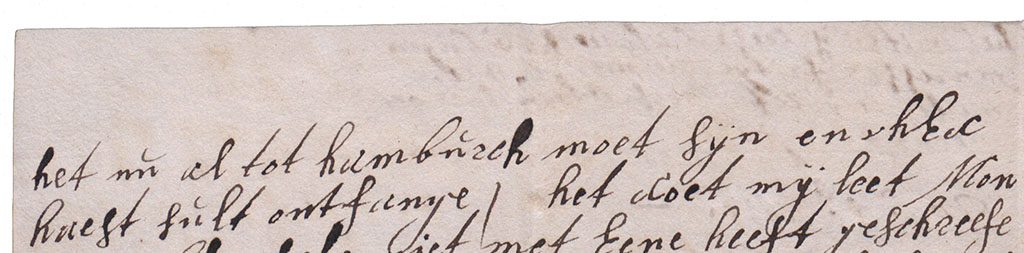 het nu al tot hamburch moet sÿn en vhEd
haest sult ontfange / het doet mÿ leet Mon
niet met Eene heeft geschreefe